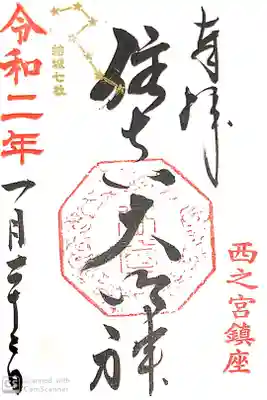 奉拝
西之宮鎮座
住吉大明神
結城七社
令和二年
一月二十三日
Scanned with
CamScanner